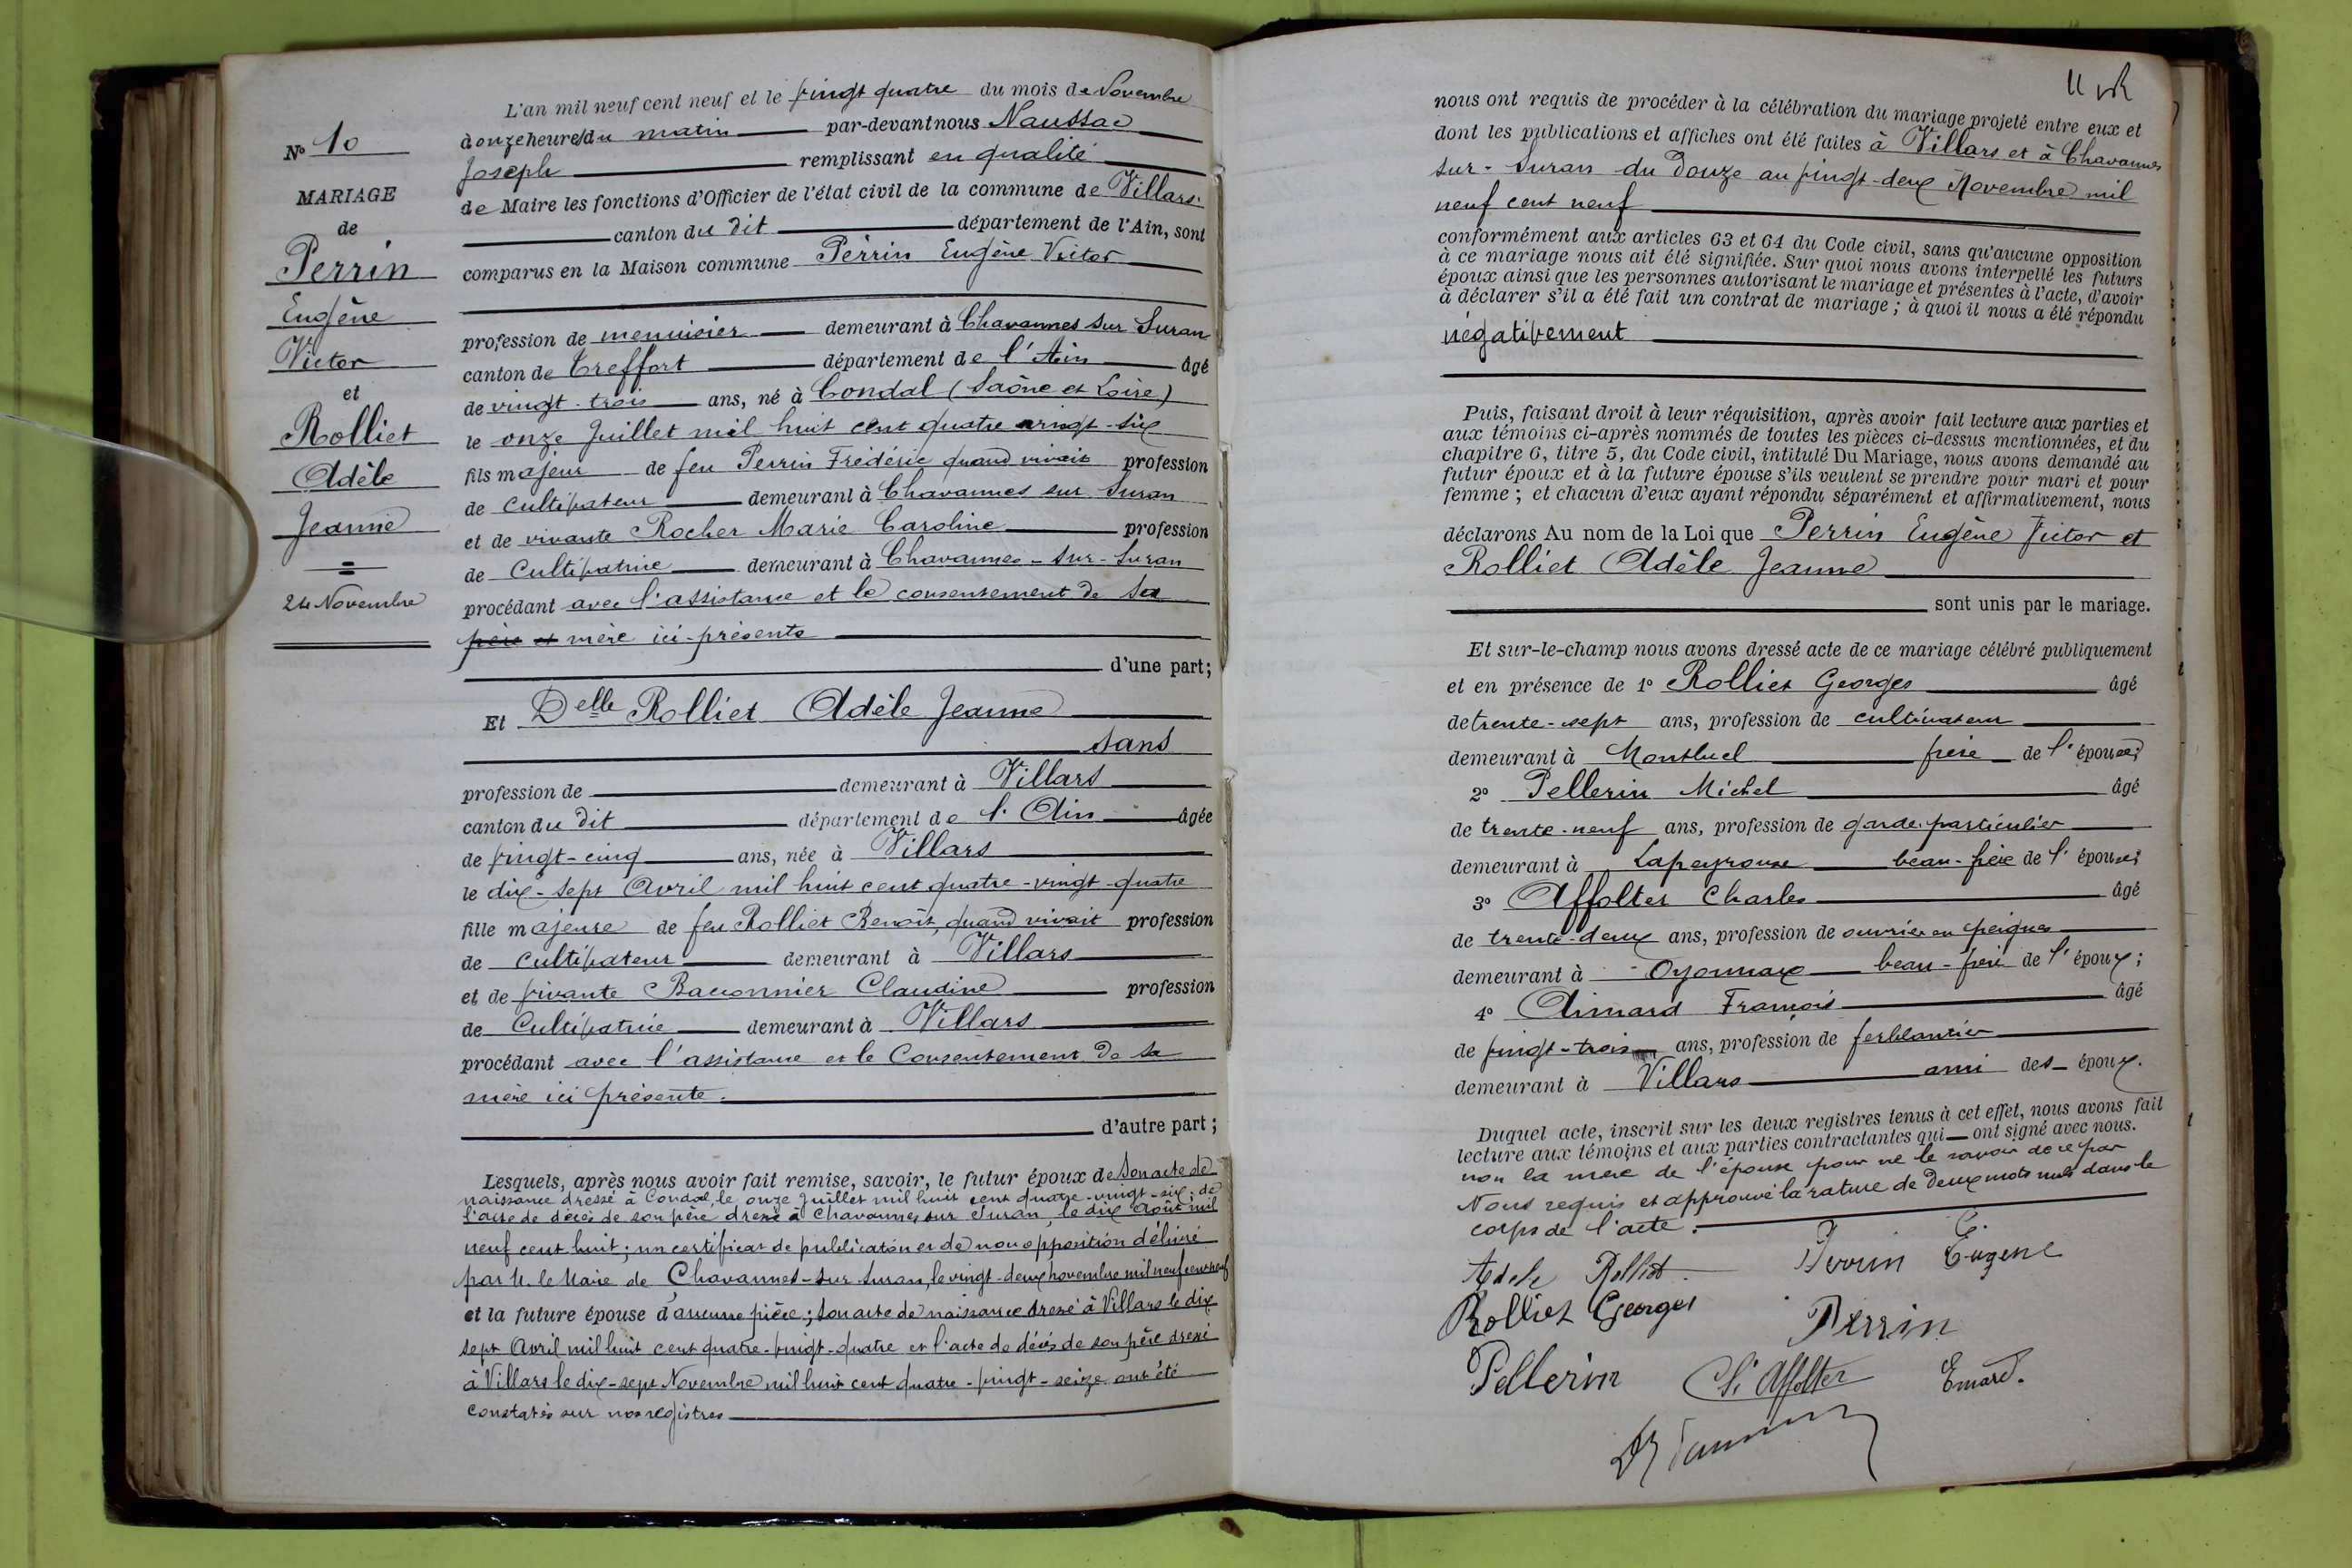 N° 10
MARIAGE
de
Perrin
Eugène
Victor
et
Rolliet
Adèle
Jeanne
24 Novembre
L'an mil neuf cent neuf et le vingt quatre du mois de Novembre
à onze heures du matin par-devant nous Naussac
Joseph remplissant en qualité
de Maire les fonctions d'Officier de l'état civil de la commune de Villars
canton du dit département de l'Ain, sont
comparus en la Maison commune Perrin Eugène Victor
profession de menuisier demeurant à Chavannes sur Suran
canton de Treffort département de l'Ain âgé
de vingt-trois ans, né à Condal (Saône et Loire)
le onze Juillet mil huit cent quatre vingt-six
fils majeur de feu Perrin Frédéric quand vivait profession
de cultivateur demeurant à Chavannes sur Suran
et de vivante Rocher Marie Caroline profession
de Cultivatrice demeurant à Chavannes-sur-Suran
procédant avec l'assistance et le consentement de sa
père et mère ici-présente
d'une part;
Et Delle Rolliet Adèle Jeanne
sans
profession de demeurant à Villars
canton du dit département de l'Ain âgée
de vingt-cinq ans, née à Villars
le dix-sept Avril mil huit cent quatre-vingt-quatre
fille majeure de feu Rolliet Benoît, quand vivait profession
de cultivateur demeurant à Villars
et de vivante Baconnier Claudine profession
de Cultivatrice demeurant à Villars
procédant avec l'assistance et le Consentement de sa
mère ici présente.
d'autre part;
Lesquels, après nous avoir fait remise, savoir, le futur époux de Son acte de
naissance dressé à Condal le onze Juillet mil huit cent quatre-vingt-six; de
l'acte de décès de son père dressé à Chavannes sur Suran, le dix Août mil
neuf cent huit; un certificat de publication et de non opposition délivré
par M. le Maire de Chavannes-sur-Suran, le vingt-deux novembre mil neuf cent neuf
et la future épouse d'aucune pièce; son acte de naissance dressé à Villars le dix
sept Avril mil huit cent quatre-vingt-quatre et l'acte de décès de son père dressé
à Villars le dix-sept Novembre mil huit cent quatre-vingt-seize ont été
constatés sur nos registres
11
nous ont requis de procéder à la célébration du mariage projeté entre eux et
dont les publications et affiches ont été faites à Villars et à Chavannes
sur-Suran du Douze au vingt-deux Novembre mil
neuf cent neuf
conformément aux articles 63 et 64 du Code civil, sans qu'aucune opposition
à ce mariage nous ait été signifiée. Sur quoi nous avons interpellé les futurs
époux ainsi que les personnes autorisant le mariage et présentes à l'acte, d'avoir
à déclarer s'il a été fait un contrat de mariage; à quoi il nous a été répondu
négativement
Puis, faisant droit à leur réquisition, après avoir fait lecture aux parties et
aux témoins ci-après nommés de toutes les pièces ci-dessus mentionnées, et du
chapitre 6, titre 5, du Code civil, intitulé Du Mariage, nous avons demandé au
futur époux et à la future épouse s'ils veulent se prendre pour mari et pour
femme; et chacun d'eux ayant répondu séparément et affirmativement, nous
déclarons Au nom de la Loi que Perrin Eugène Victor et
Rolliet Adèle Jeanne
sont unis par le mariage.
Et sur-le-champ nous avons dressé acte de ce mariage célébré publiquement
et en présence de 1° Rolliet Georges âgé
de trente-sept ans, profession de cultivateur
demeurant à Montluel frère de l'épouse;
2° Pellerin Michel âgé
de trente-neuf ans, profession de garde-particulier
demeurant à Lapeyrouse beau-frère de l'épouse;
3° Affolter Charles âgé
de trente-deux ans, profession de ouvrier en peignes
demeurant à Oyonnax beau-frère de l'époux;
4° Aimard François âgé
de vingt-trois ans, profession de ferblantier
demeurant à Villars ami des époux.
Duquel acte, inscrit sur les deux registres tenus à cet effet, nous avons fait
lecture aux témoins et aux parties contractantes qui ont signé avec nous.
non la mère de l'épouse pour ne le savoir de ce par
Nous requis et approuvé la rature de deux mots nuls dans le
corps de l'acte.
Adele Rolliet Perrin Eugene
Rolliet Georges Perrin
Pellerin Ch. Affolter Emard.